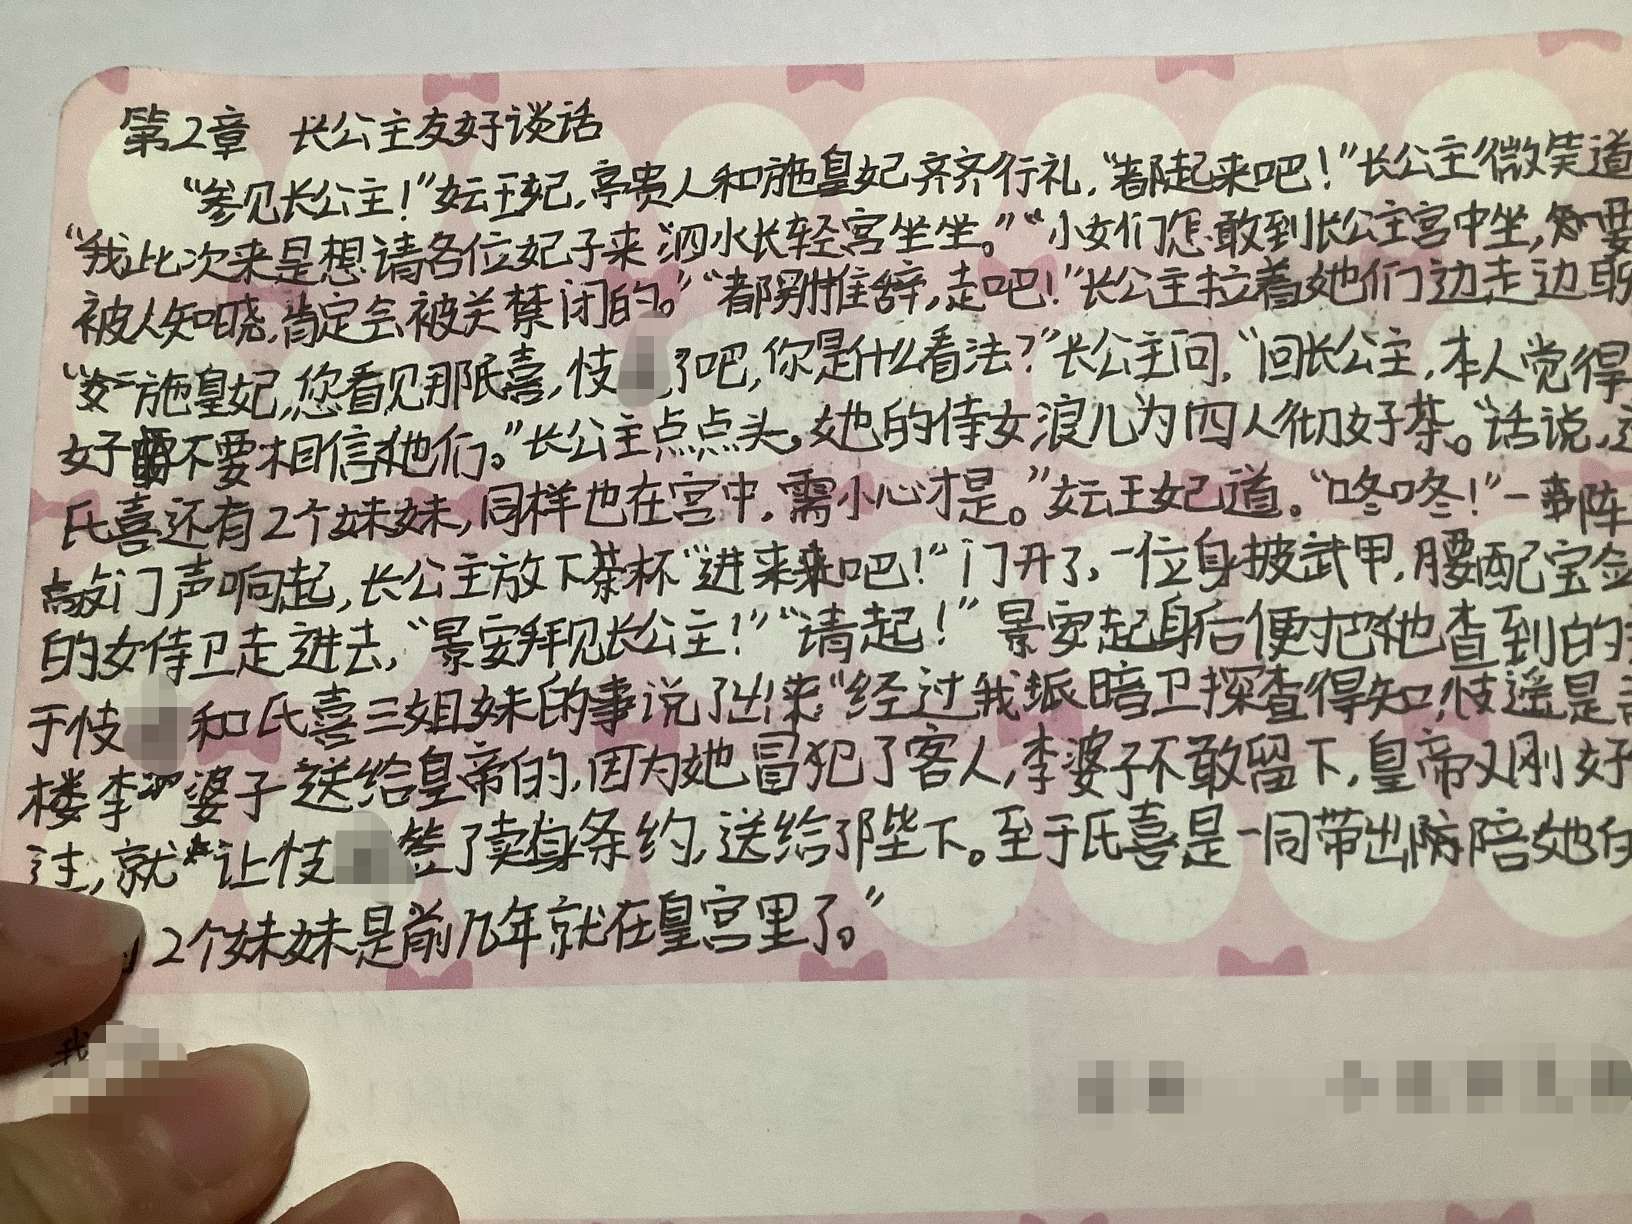 第2章 长公主友好谈话
“参见长公主！”妘王妃，亭贵人和施皇妃齐齐行礼，“都起来吧！”长公主微笑道
“我此次来是想请各位妃子来泗水长轻宫坐坐。”“小女们怎敢到长公主宫中坐，要
被人知晓，肯定会被关禁闭的。”“都别推辞，走吧！”长公主拉着她们边走边
“施皇妃，您看见那氏喜，忮了吧，你是什么看法？”长公主问，“回长公主，本人觉得
好不要相信她们。”长公主点点头，她的侍女浪儿为四人彻好茶。“话说，
氏喜还有2个妹妹，同样也在宫中，需小心才是。”妘王妃道。“咚咚！”一阵
敲门声响起，长公主放下茶杯“进来吧！”门开了，一位身披武甲，腰配宝剑
的女侍卫走进去，“景安拜见长公主！”“请起！”景安起身后便把他查到的
于忮和氏喜三姐妹的事说了出来“经过我派暗卫探查得知，忮遥是
楼李婆子送给皇帝的，因为她冒犯了客人，李婆子不敢留下，皇帝又刚好
过，就让忮签了卖身条约，送给了陛下。至于氏喜是一同带出陪她
2个妹妹是前几年就在皇宫里了。”
我